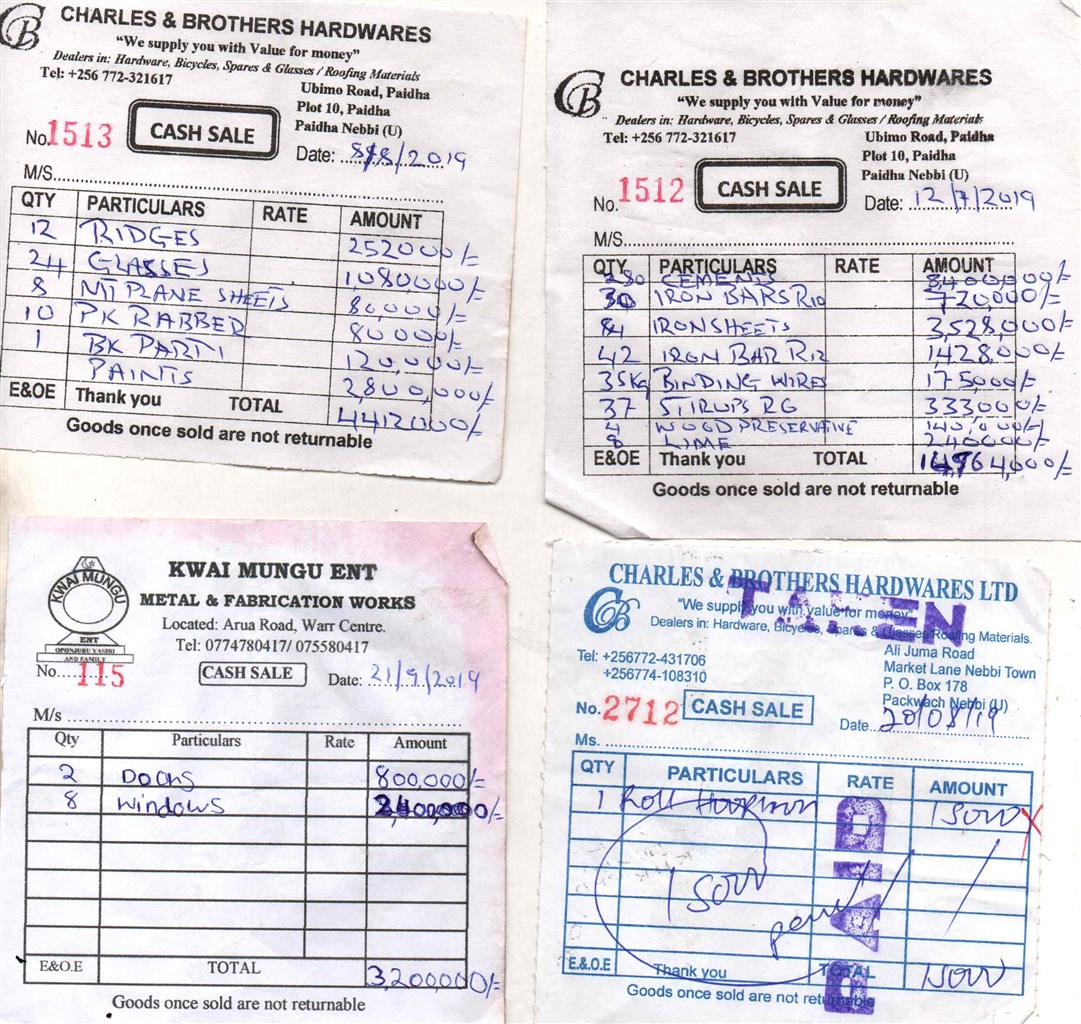 CHARLES & BROTHERS HARDWARES
"We supply you with Value for money"
Dealers in: Hardware, Bicycles, Spares & Glasses / Roofing Materials
Tel: +256 772-321617
Ubimo Road, Paidha
Plot 10, Paidha
Paidha Nebbi (U)
No. 1513 CASH SALE
Date: 8/8/2019
M/S
QTY PARTICULARS RATE AMOUNT
12 RIDGES 252000/=
24 GLASSES 1080000/=
8 MT PLANE SHEETS 80,000/=
10 PK RABBER 80000/=
1 BK PARTI 120,000/=
PAINTS 2,800,000/=
E&OE Thank you TOTAL 4412000/=
Goods once sold are not returnable
CHARLES & BROTHERS HARDWARES
"We supply you with Value for money"
Dealers in: Hardware, Bicycles, Spares & Glasses / Roofing Materials
Tel: +256 772-321617
Ubimo Road, Paidha
Plot 10, Paidha
Paidha Nebbi (U)
No. 1512 CASH SALE
Date: 12/7/2019
M/S
QTY PARTICULARS RATE AMOUNT
280 CEMENTS 8400000/=
30 IRON BARS R10 720,000/=
84 IRON SHEETS 3,528,000/=
42 IRON BAR R12 1428,000/=
35Kg BINDING WIRES 175000/=
37 STIRUPS RG 333000/=
4 WOOD PRESERVATIVE 140,000/=
8 LIME 240000/=
E&OE Thank you TOTAL 14964,000/=
Goods once sold are not returnable
KWAI MUNGU
ENT
OPONJURU YASIRI
AND FAMILY
KWAI MUNGU ENT
METAL & FABRICATION WORKS
Located: Arua Road, Warr Centre.
Tel: 0774780417/ 075580417
No. 115 CASH SALE Date: 21/9/2019
M/s
Qty Particulars Rate Amount
2 Doors 800,000/=
8 windows 2,400,000/=
E&O.E TOTAL 3,200,000/=
Goods once sold are not returnable
CHARLES & BROTHERS HARDWARES LTD
"We supply you with value for money"
TAKEN
Dealers in: Hardware, Bicycles, Spares & Glasses Roofing Materials.
Ali Juma Road
Tel: +256772-431706
Market Lane Nebbi Town
+256774-108310
P. O. Box 178
Packwach Nebbi (U)
No. 2712 CASH SALE
Date 20/08/19
Ms.
QTY PARTICULARS RATE AMOUNT
1 Roll
PAID
E.&.O.E Thank you TOTAL
Goods once sold are not returnable